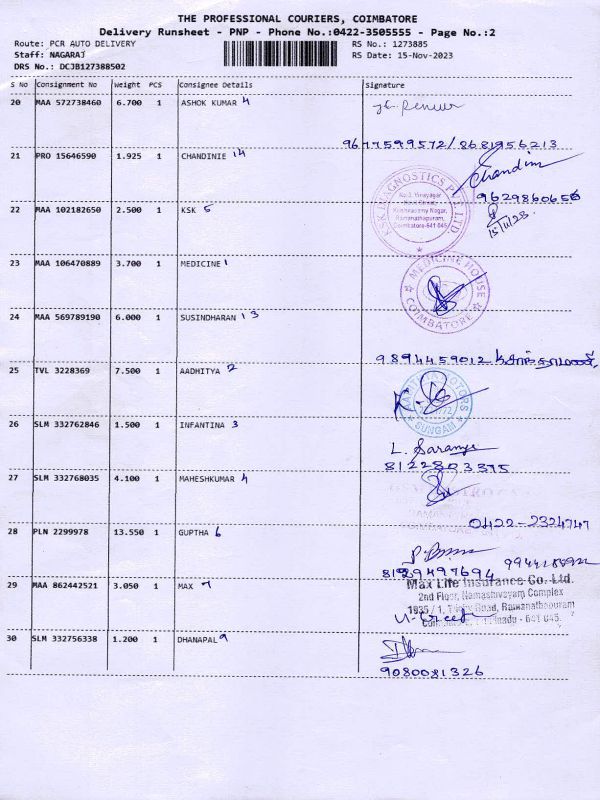 THE PROFESSIONAL COURIERS, COIMBATORE
Delivery Runsheet - PNP - Phone No.:0422-3505555 - Page No.:2
Route: PCR AUTO DELIVERY RS No.: 1273885
Staff: NAGARAJ RS Date: 15-Nov-2023
DRS No.: DCJB127388502
S No Consignment No Weight PCS Consignee Details Signature
20 MAA 572738460 6.700 1 ASHOK KUMAR 4
9677599572/8681956213
21 PRO 15646590 1.925 1 CHANDINIE 14
Chandini
9629860656
22 MAA 102182650 2.500 1 KSK 5
DIAGNOSTICS PVT. LTD.
Krishnasamy Nagar,
Ramanathapuram,
Coimbatore-641 045.
15/11/23
23 MAA 106470889 3.700 1 MEDICINE 1
MEDICINE HOUSE
COIMBATORE
24 MAA 569789190 6.000 1 SUSINDHARAN 13
9894459012
25 TVL 3228369 7.500 1 AADHITYA 2
MOTORS
SUNGAM
26 SLM 332762846 1.500 1 INFANTINA 3
L. Saranya
8122803395
27 SLM 332768035 4.100 1 MAHESHKUMAR 4
0422-2324747
28 PLN 2299978 13.550 1 GUPTHA 6
29 MAA 862442521 3.050 1 MAX 7
Max Life Insurance Co. Ltd.
2nd Floor, Namashivayam Complex
1935 / 1, Trichy Road, Ramanathapuram
641 045.
30 SLM 332756338 1.200 1 DHANAPAL 9
9080081326